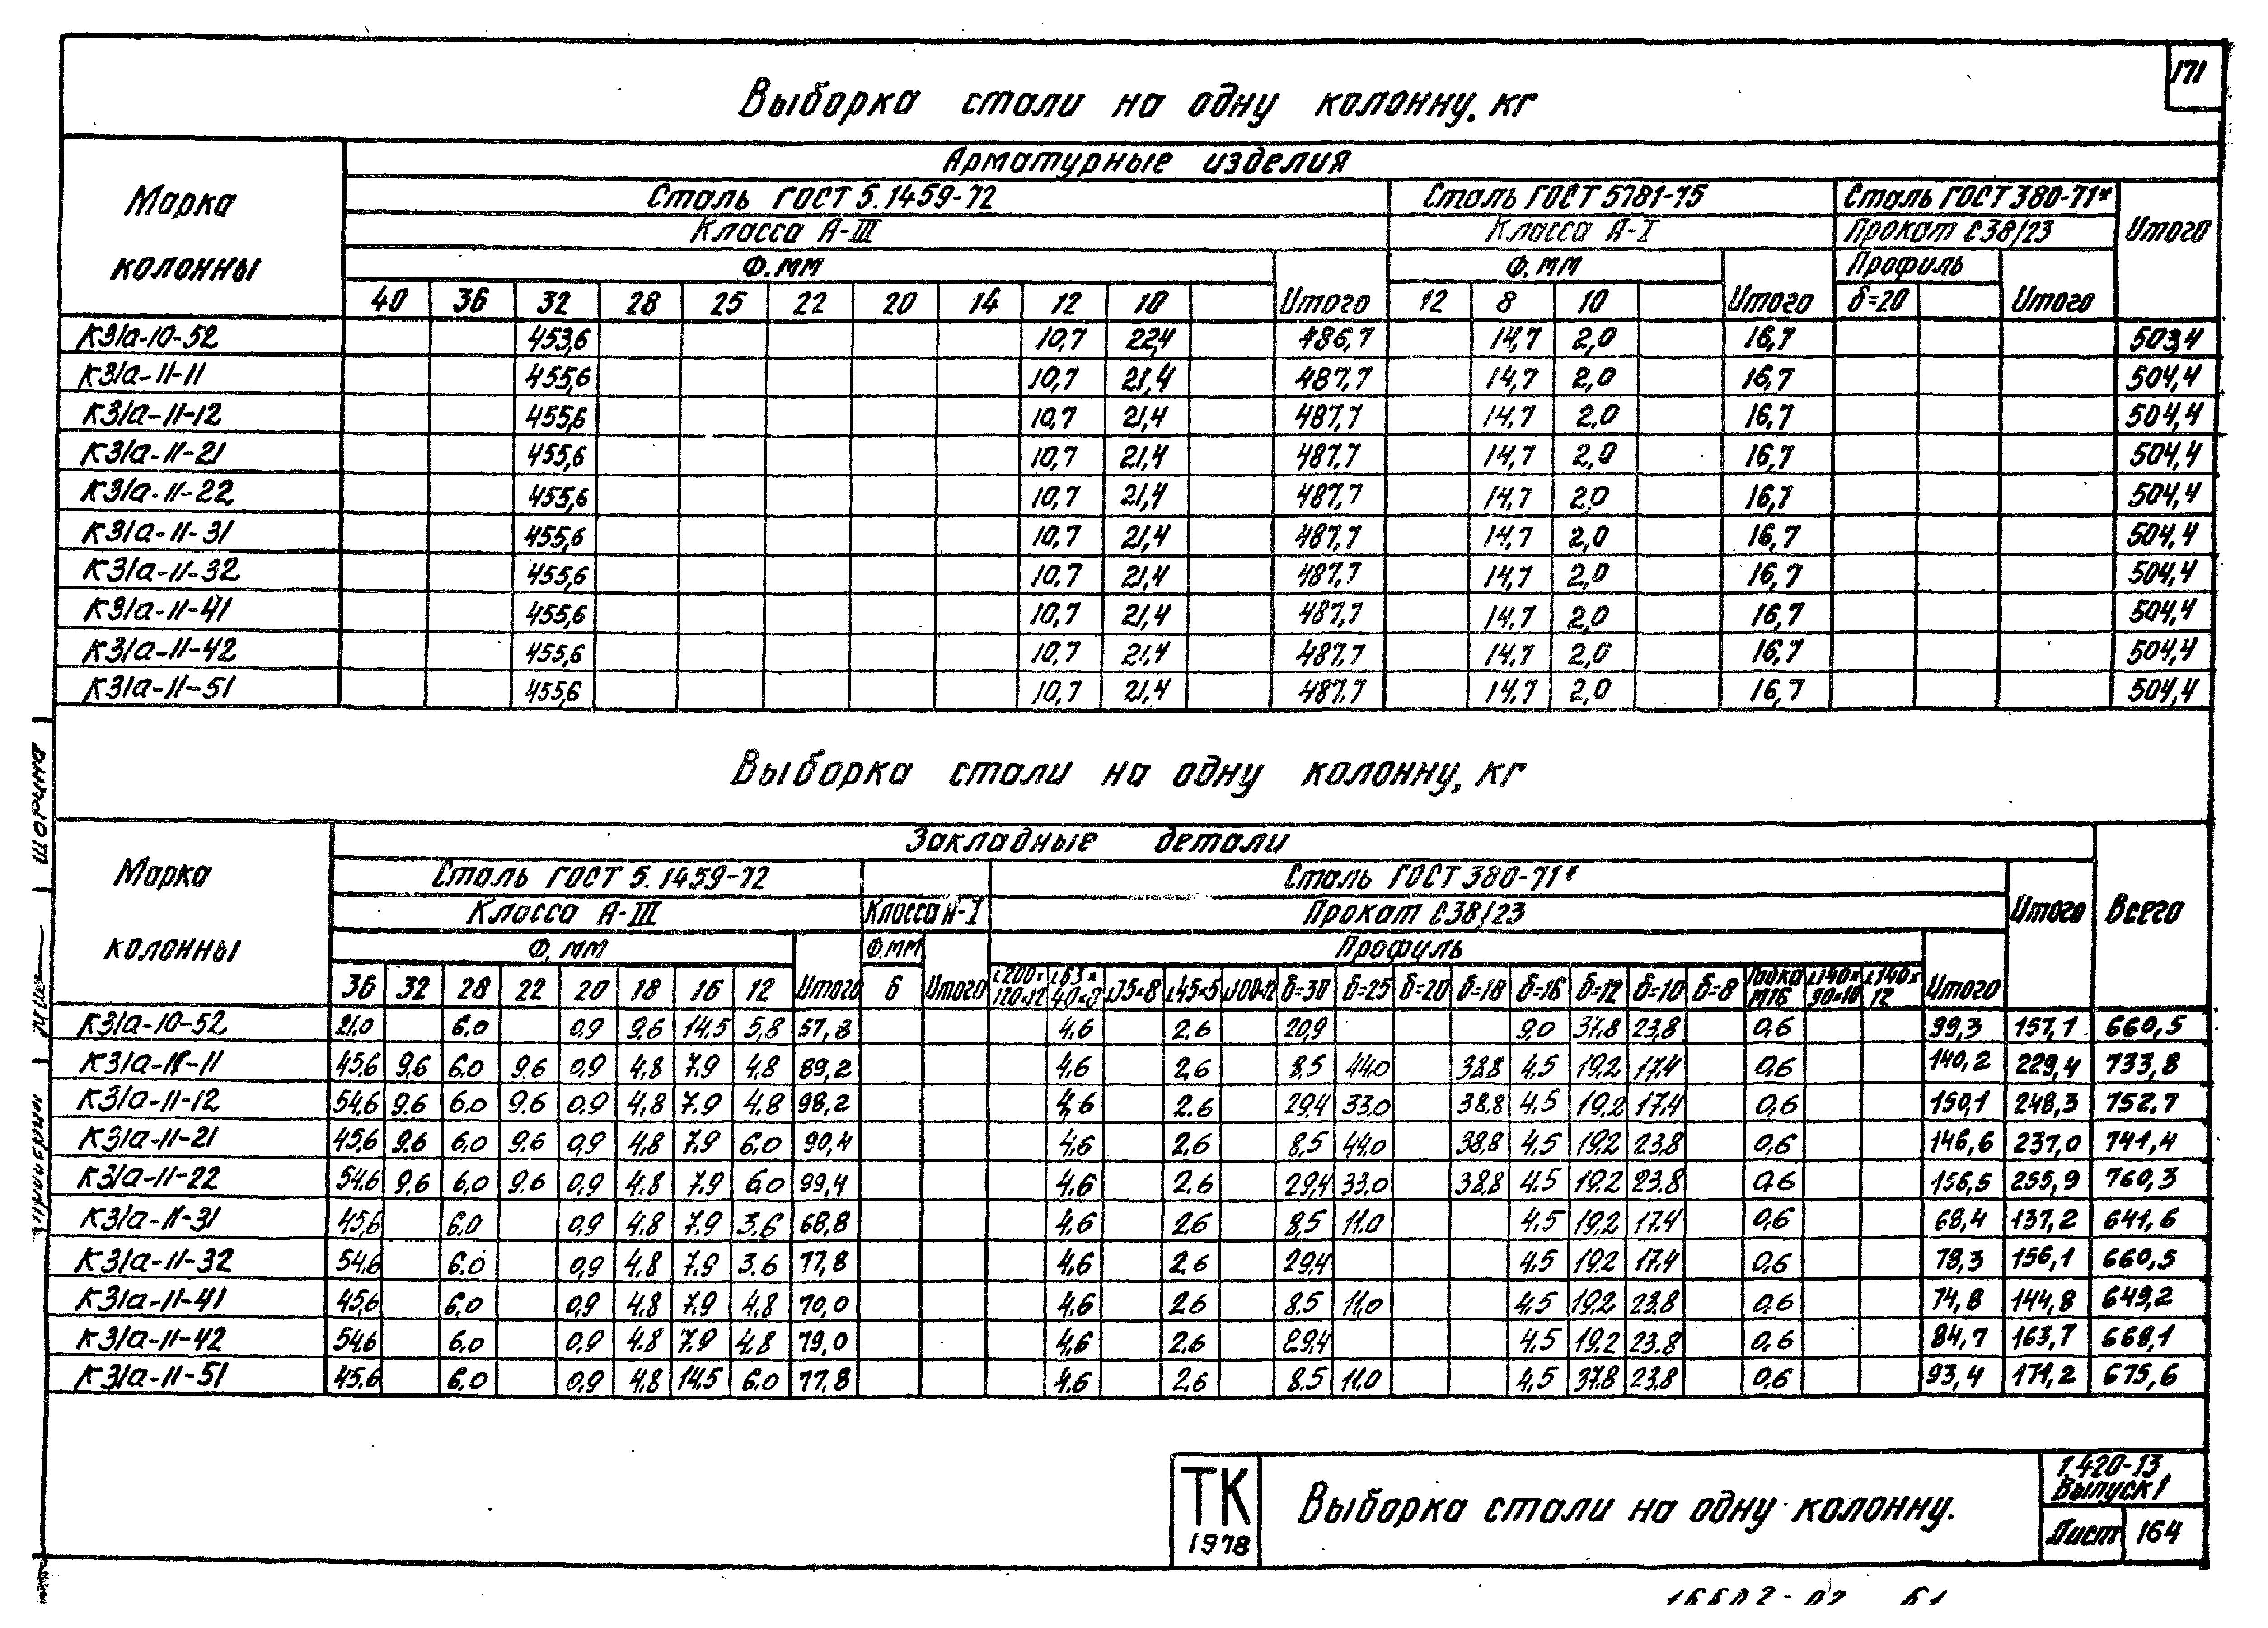 171
Выборка стали на одну колонну, кг
Марка колонны
Арматурные изделия
Сталь ГОСТ 5.1459-72 Сталь ГОСТ 5781-75 Сталь ГОСТ 380-71* Итого
Класса А-III Класса А-I Прокат С38/23
Ф, мм Итого Ф, мм Итого Профиль Итого
40 36 32 28 25 22 20 14 12 10 12 8 10 δ=20
К31а-10-52 453,6 10,7 22,4 486,7 14,7 2,0 16,7 503,4
К31а-11-11 455,6 10,7 21,4 487,7 14,7 2,0 16,7 504,4
К31а-11-12 455,6 10,7 21,4 487,7 14,7 2,0 16,7 504,4
К31а-11-21 455,6 10,7 21,4 487,7 14,7 2,0 16,7 504,4
К31а-11-22 455,6 10,7 21,4 487,7 14,7 2,0 16,7 504,4
К31а-11-31 455,6 10,7 21,4 487,7 14,7 2,0 16,7 504,4
К31а-11-32 455,6 10,7 21,4 487,7 14,7 2,0 16,7 504,4
К31а-11-41 455,6 10,7 21,4 487,7 14,7 2,0 16,7 504,4
К31а-11-42 455,6 10,7 21,4 487,7 14,7 2,0 16,7 504,4
К31а-11-51 455,6 10,7 21,4 487,7 14,7 2,0 16,7 504,4
Выборка стали на одну колонну, кг
Марка колонны
Закладные детали
Сталь ГОСТ 5.1459-72 Сталь ГОСТ 380-71* Итого Всего
Класса А-III Класса А-I Прокат С38/23
Ф, мм Итого Ф.мм Итого Профиль Итого
36 32 28 22 20 18 16 12 6 ∟200× 120×12 ∟63× 40×8 ∟75×8 ∟45×5 ∟100×12 δ=30 δ=25 δ=20 δ=18 δ=16 δ=12 δ=10 δ=8 Гайка М16 ∟140× 90×10 ∟140× 12
К31а-10-52 21,0 6,0 0,9 9,6 14,5 5,8 57,8 4,6 2,6 20,9 9,0 37,8 23,8 0,6 99,3 157,1 660,5
К31а-11-11 45,6 9,6 6,0 9,6 0,9 4,8 7,9 4,8 89,2 4,6 2,6 8,5 44,0 38,8 4,5 19,2 17,4 0,6 140,2 229,4 733,8
К31а-11-12 54,6 9,6 6,0 9,6 0,9 4,8 7,9 4,8 98,2 4,6 2,6 29,4 33,0 38,8 4,5 19,2 17,4 0,6 150,1 248,3 752,7
К31а-11-21 45,6 9,6 6,0 9,6 0,9 4,8 7,9 6,0 90,4 4,6 2,6 8,5 44,0 38,8 4,5 19,2 23,8 0,6 146,6 237,0 741,4
К31а-11-22 54,6 9,6 6,0 9,6 0,9 4,8 7,9 6,0 99,4 4,6 2,6 29,4 33,0 38,8 4,5 19,2 23,8 0,6 156,5 255,9 760,3
К31а-11-31 45,6 6,0 0,9 4,8 7,9 3,6 68,8 4,6 2,6 8,5 11,0 4,5 19,2 17,4 0,6 68,4 137,2 641,6
К31а-11-32 54,6 6,0 0,9 4,8 7,9 3,6 77,8 4,6 2,6 29,4 4,5 19,2 17,4 0,6 78,3 156,1 660,5
К31а-11-41 45,6 6,0 0,9 4,8 7,9 4,8 70,0 4,6 2,6 8,5 11,0 4,5 19,2 23,8 0,6 74,8 144,8 649,2
К31а-11-42 54,6 6,0 0,9 4,8 7,9 4,8 79,0 4,6 2,6 29,4 4,5 19,2 23,8 0,6 84,7 163,7 668,1
К31а-11-51 45,6 6,0 0,9 4,8 14,5 6,0 77,8 4,6 2,6 8,5 11,0 4,5 37,8 23,8 0,6 93,4 171,2 675,6
ТК
1978
Выборка стали на одну колонну.
1.420-13
Выпуск 1
Лист 164
Шорина